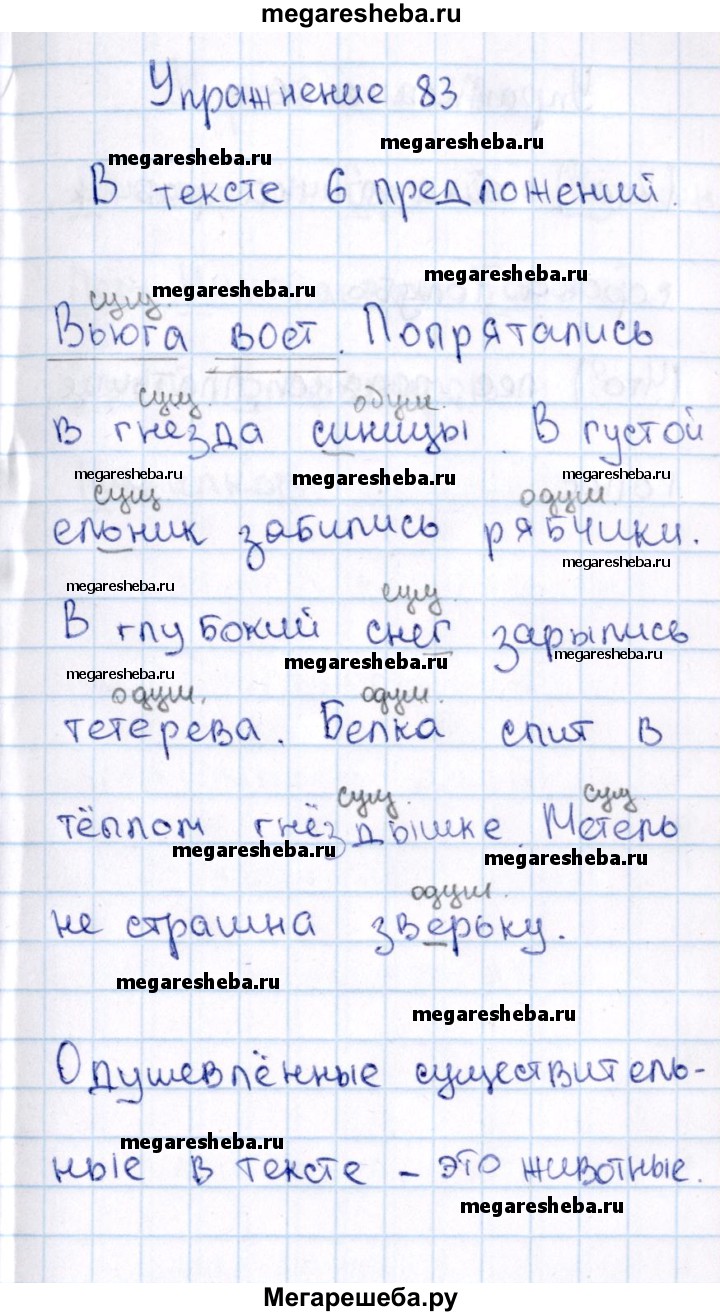 megaresheba.ru
Упражнение 83
megaresheba.ru
megaresheba.ru
В тексте 6 предложений.
megaresheba.ru
сущ. megaresheba.ru
Вьюга воет. Попрятались
сущ. одуш.
в гнезда синицы. В густой
megaresheba.ru megaresheba.ru megaresheba.ru
сущ одуш.
ельник забились рябчики.
megaresheba.ru
megaresheba.ru сущ.
В глубокий снег зарылись
megaresheba.ru megaresheba.ru
megaresheba.ru
одуш. одуш.
тетерева. Белка спит в
сущ. сущ.
тёплом гнёздышке. Метель
megaresheba.ru megaresheba.ru
одуш.
не страшна зверьку.
megaresheba.ru
megaresheba.ru
Одушевлённые существитель-
megaresheba.ru
ные в тексте – это животные.
megaresheba.ru
Мегарешеба.ру